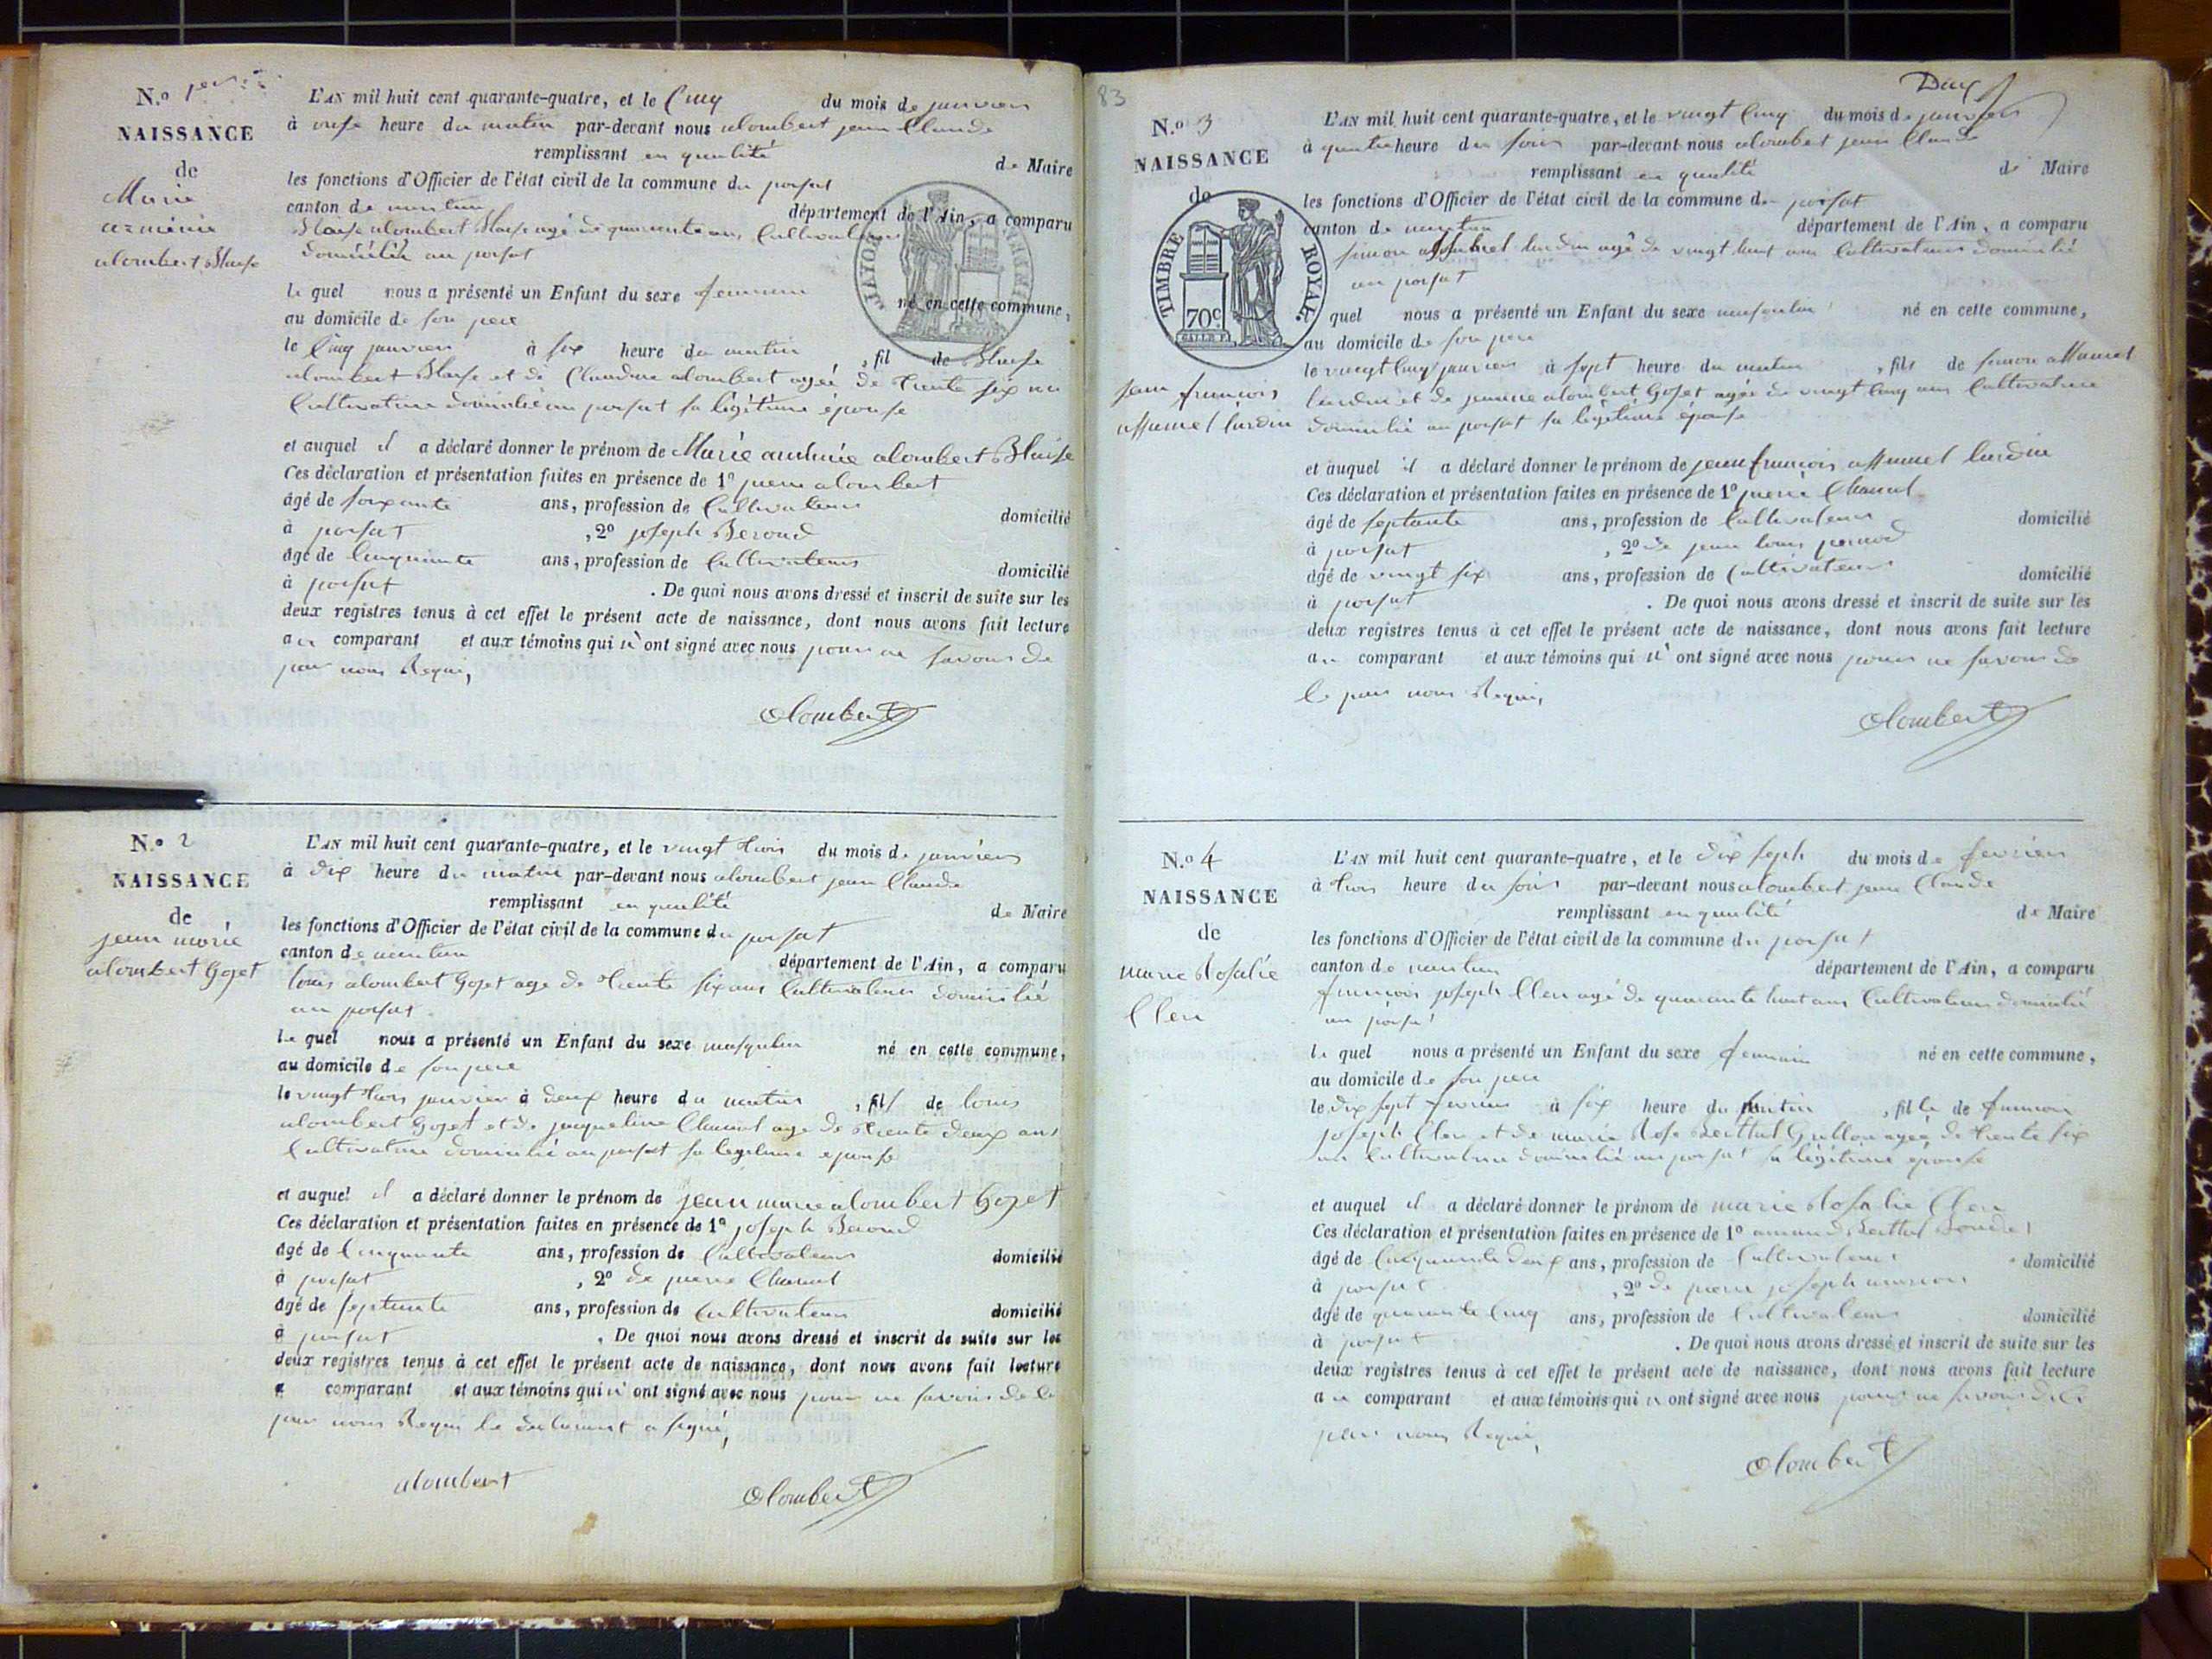 N.º 1er
NAISSANCE
de
Marie
arménie
alombert Blaise
L'AN mil huit cent quarante-quatre, et le Cinq du mois de janvier
à onse heure du matin par-devant nous alombert jean Claude
remplissant en qualité de Maire
les fonctions d'Officier de l'état civil de la commune du porsat
canton de nantua département de l'Ain, a comparu
Blaise alombert Blaise agé de quarante ans Cultivateur
domicilié au porsat
le quel nous a présenté un Enfant du sexe feminin né en cette commune,
au domicile de son pere
le Cinq janvier à six heure du matin, fil de Blaise
alombert Blaise et de Claudine alombert agée de trente six an
Cultivatrice domicilié au porsat sa légitime épouse
et auquel il a déclaré donner le prénom de Marie arménie alombert Blaise
Ces déclaration et présentation faites en présence de 1º pierre alombert
âgé de soixante ans, profession de Cultivateur domicilié
à porsat, 2º joseph Beroud
âgé de Cinquante ans, profession de Cultivateur domicilié
à porsat. De quoi nous avons dressé et inscrit de suite sur les
deux registres tenus à cet effet le présent acte de naissance, dont nous avons fait lecture
au comparant et aux témoins qui n'ont signé avec nous pour ne savoir de
par nous Requi,
alombert
N.º 2
NAISSANCE
de
jean marie
alombert Gojet
L'AN mil huit cent quarante-quatre, et le vingt trois du mois de janvier
à dix heure du matin par-devant nous alombert jean Claude
remplissant en qualité de Maire
les fonctions d'Officier de l'état civil de la commune du porsat
canton de nantua département de l'Ain, a comparu
louis alombert Gojet age de trente six ans Cultivateur domicilié
au porsat
le quel nous a présenté un Enfant du sexe masqulin né en cette commune,
au domicile de son pere
le vingt trois janvier à deux heure du matin, fils de louis
alombert Gojet et de jacqueline Chanel age de trente deux ans
Cultivatrice domicilié au porsat sa legitime epouse
et auquel il a déclaré donner le prénom de jean marie alombert Gojet
Ces déclaration et présentation faites en présence de 1º joseph Beroud
âgé de Cinquante ans, profession de Cultivateur domicilié
à porsat, 2º de pierre Chanel
âgé de septante ans, profession de Cultivateur domicilié
à porsat. De quoi nous avons dressé et inscrit de suite sur les
deux registres tenus à cet effet le présent acte de naissance, dont nous avons fait lecture
a comparant et aux témoins qui n'ont signé avec nous pour ne savoir de le
par nous Requi le declarant a signé,
alombert alombert
83
Deux
N.º 3
NAISSANCE
de
TIMBRE ROYAL
70c
jean francois
assumel lurdin
L'AN mil huit cent quarante-quatre, et le vingt Cinq du mois de janvier
à quatre heure du soir par-devant nous alombert jean Claude
remplissant en qualité de Maire
les fonctions d'Officier de l'état civil de la commune du porsat
canton de nantua département de l'Ain, a comparu
simon assumel lurdin agé de vingt huit ans Cultivateur domicilié
au porsat
quel nous a présenté un Enfant du sexe masculin né en cette commune,
au domicile de son pere
le vingt Cinq janvier à sept heure du matin, fils de simon assumel
lurdin et de jeanne alombert Gojet agée de vingt Cinq ans Cultivatrice
domicilié au porsat sa légitime épouse
et auquel il a déclaré donner le prénom de jean francois assumel lurdin
Ces déclaration et présentation faites en présence de 1º pierre Chanel
âgé de septante ans, profession de Cultivateur domicilié
à porsat, 2º de jean louis pernod
âgé de vingt six ans, profession de Cultivateur domicilié
à porsat. De quoi nous avons dressé et inscrit de suite sur les
deux registres tenus à cet effet le présent acte de naissance, dont nous avons fait lecture
au comparant et aux témoins qui n'ont signé avec nous pour ne savoir de
le par nous Requi,
alombert
N.º 4
NAISSANCE
de
marie Rosalie
Clerc
L'AN mil huit cent quarante-quatre, et le dix seph du mois de fevrier
à trois heure du soir par-devant nous alombert jean Claude
remplissant en qualité de Maire
les fonctions d'Officier de l'état civil de la commune du porsat
canton de nantua département de l'Ain, a comparu
francois joseph Clerc agé de quarante huit ans Cultivateur domicilié
au porsat
le quel nous a présenté un Enfant du sexe feminin né en cette commune,
au domicile de son pere
le dix sept fevrier à six heure du matin, fille de francois
joseph Clerc et de marie Rose Berthet Gullon agée de trente six
an Cultivatrice domicilié au porsat sa légitime épouse
et auquel il a déclaré donner le prénom de marie Rosalie Clerc
Ces déclaration et présentation faites en présence de 1º armand Berthet
âgé de Cinquante deux ans, profession de Cultivateur domicilié
à porsat, 2º de pierre joseph
âgé de quarante Cinq ans, profession de Cultivateur domicilié
à porsat. De quoi nous avons dressé et inscrit de suite sur les
deux registres tenus à cet effet le présent acte de naissance, dont nous avons fait lecture
au comparant et aux témoins qui n'ont signé avec nous pour ne savoir de le
par nous Requi,
alombert